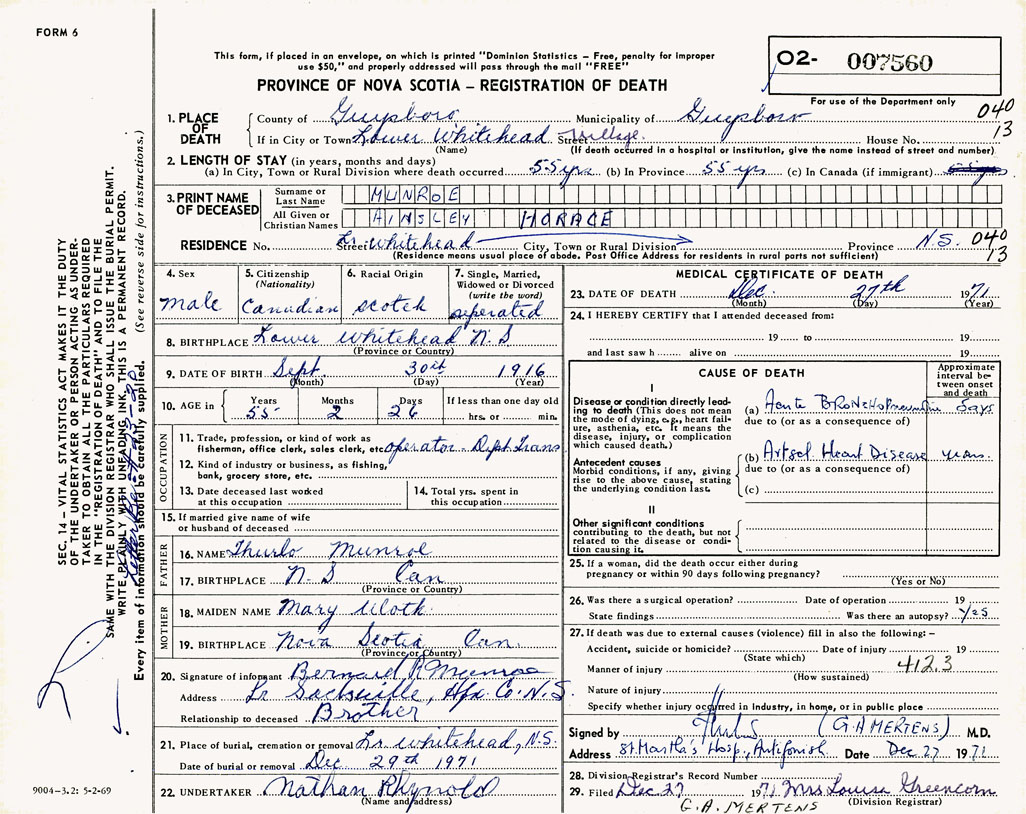 FORM 6
This form, if placed in an envelope, on which is printed "Dominion Statistics – Free, penalty for improper
use $50," and properly addressed will pass through the mail "FREE"
O2- 007560
PROVINCE OF NOVA SCOTIA – REGISTRATION OF DEATH
For use of the Department only
040
13
1. PLACE OF DEATH
County of Guysboro Municipality of Guysboro
If in City or Town Lower Whitehead Street Village House No.
(Name) (If death occurred in a hospital or institution, give the name instead of street and number)
2. LENGTH OF STAY (in years, months and days)
(a) In City, Town or Rural Division where death occurred 55 yrs (b) In Province 55 yrs (c) In Canada (if immigrant)
3. PRINT NAME OF DECEASED
Surname or Last Name MUNROE
All Given or Christian Names AINSLEY HORACE
RESIDENCE No. Street Lr. Whitehead City, Town or Rural Division Province N.S. 040
13
(Residence means usual place of abode. Post Office Address for residents in rural parts not sufficient)
4. Sex
male
5. Citizenship
(Nationality)
Canadian
6. Racial Origin
Scotch
7. Single, Married,
Widowed or Divorced
(write the word)
seperated
8. BIRTHPLACE Lower Whitehead N.S
(Province or Country)
9. DATE OF BIRTH Sept. 30th 1916
(Month) (Day) (Year)
10. AGE in Years 55 Months 2 Days 26 If less than one day old
hrs. or min.
OCCUPATION
11. Trade, profession, or kind of work as
fisherman, office clerk, sales clerk, etc. operator Dept. Trans
12. Kind of industry or business, as fishing,
bank, grocery store, etc.
13. Date deceased last worked
at this occupation
14. Total yrs. spent in
this occupation
15. If married give name of wife
or husband of deceased
FATHER
16. NAME Thurlo Munroe
17. BIRTHPLACE N.S Can
(Province or Country)
MOTHER
18. MAIDEN NAME Mary
19. BIRTHPLACE Nova Scotia Can.
(Province or Country)
20. Signature of informant Bernard R Munroe
Address Lr Sackville, Hfx. Co. N.S
Relationship to deceased Brother
21. Place of burial, cremation or removal Lr. Whitehead, N.S.
Date of burial or removal Dec 29th 1971
22. UNDERTAKER Nathan Rhynold
(Name and address)
MEDICAL CERTIFICATE OF DEATH
23. DATE OF DEATH Dec. 27th 1971
(Month) (Day) (Year)
24. I HEREBY CERTIFY that I attended deceased from:
19 to 19
and last saw h alive on 19
CAUSE OF DEATH
Approximate
interval be-
tween onset
and death
I
Disease or condition directly lead-
ing to death (This does not
mean the mode of dying, e.g., heart fail-
ure, asthenia, etc. It means the
disease, injury, or complication
which caused death.)
(a) Acute Bronchopneumonia days
due to (or as a consequence of)
Antecedent causes
Morbid conditions, if any, giving
rise to the above cause, stating
the underlying condition last.
(b) Artscl Heart Disease years.
due to (or as a consequence of)
(c)
II
Other significant conditions
contributing to the death, but not
related to the disease or condi-
tion causing it.
25. If a woman, did the death occur either during
pregnancy or within 90 days following pregnancy?
(Yes or No)
26. Was there a surgical operation? Date of operation 19
State findings Was there an autopsy? Yes
27. If death was due to external causes (violence) fill in also the following: –
Accident, suicide or homicide? Date of injury 19
(State which)
Manner of injury 412.3
(How sustained)
Nature of injury
Specify whether injury occurred in industry, in home, or in public place
Signed by (G.A MERTENS) M.D.
Address St Martha's Hosp., Antigonish Date Dec 27 1971
28. Division Registrar's Record Number
29. Filed Dec 27 1971 Mrs Louisa Greencorn
(Division Registrar)
G.A. MERTENS
SEC. 14 – VITAL STATISTICS ACT MAKES IT THE DUTY
OF THE UNDERTAKER OR PERSON ACTING AS UNDER-
TAKER TO OBTAIN ALL THE PARTICULARS REQUIRED
IN THE "REGISTRATION OF DEATH" AND TO FILE THE
SAME WITH THE DIVISION REGISTRAR WHO SHALL ISSUE THE BURIAL PERMIT.
WRITE PLAINLY WITH UNFADING INK, THIS IS A PERMANENT RECORD.
Every item of information should be carefully supplied. (See reverse side for instructions.)
9004-3.2: 5-2-69